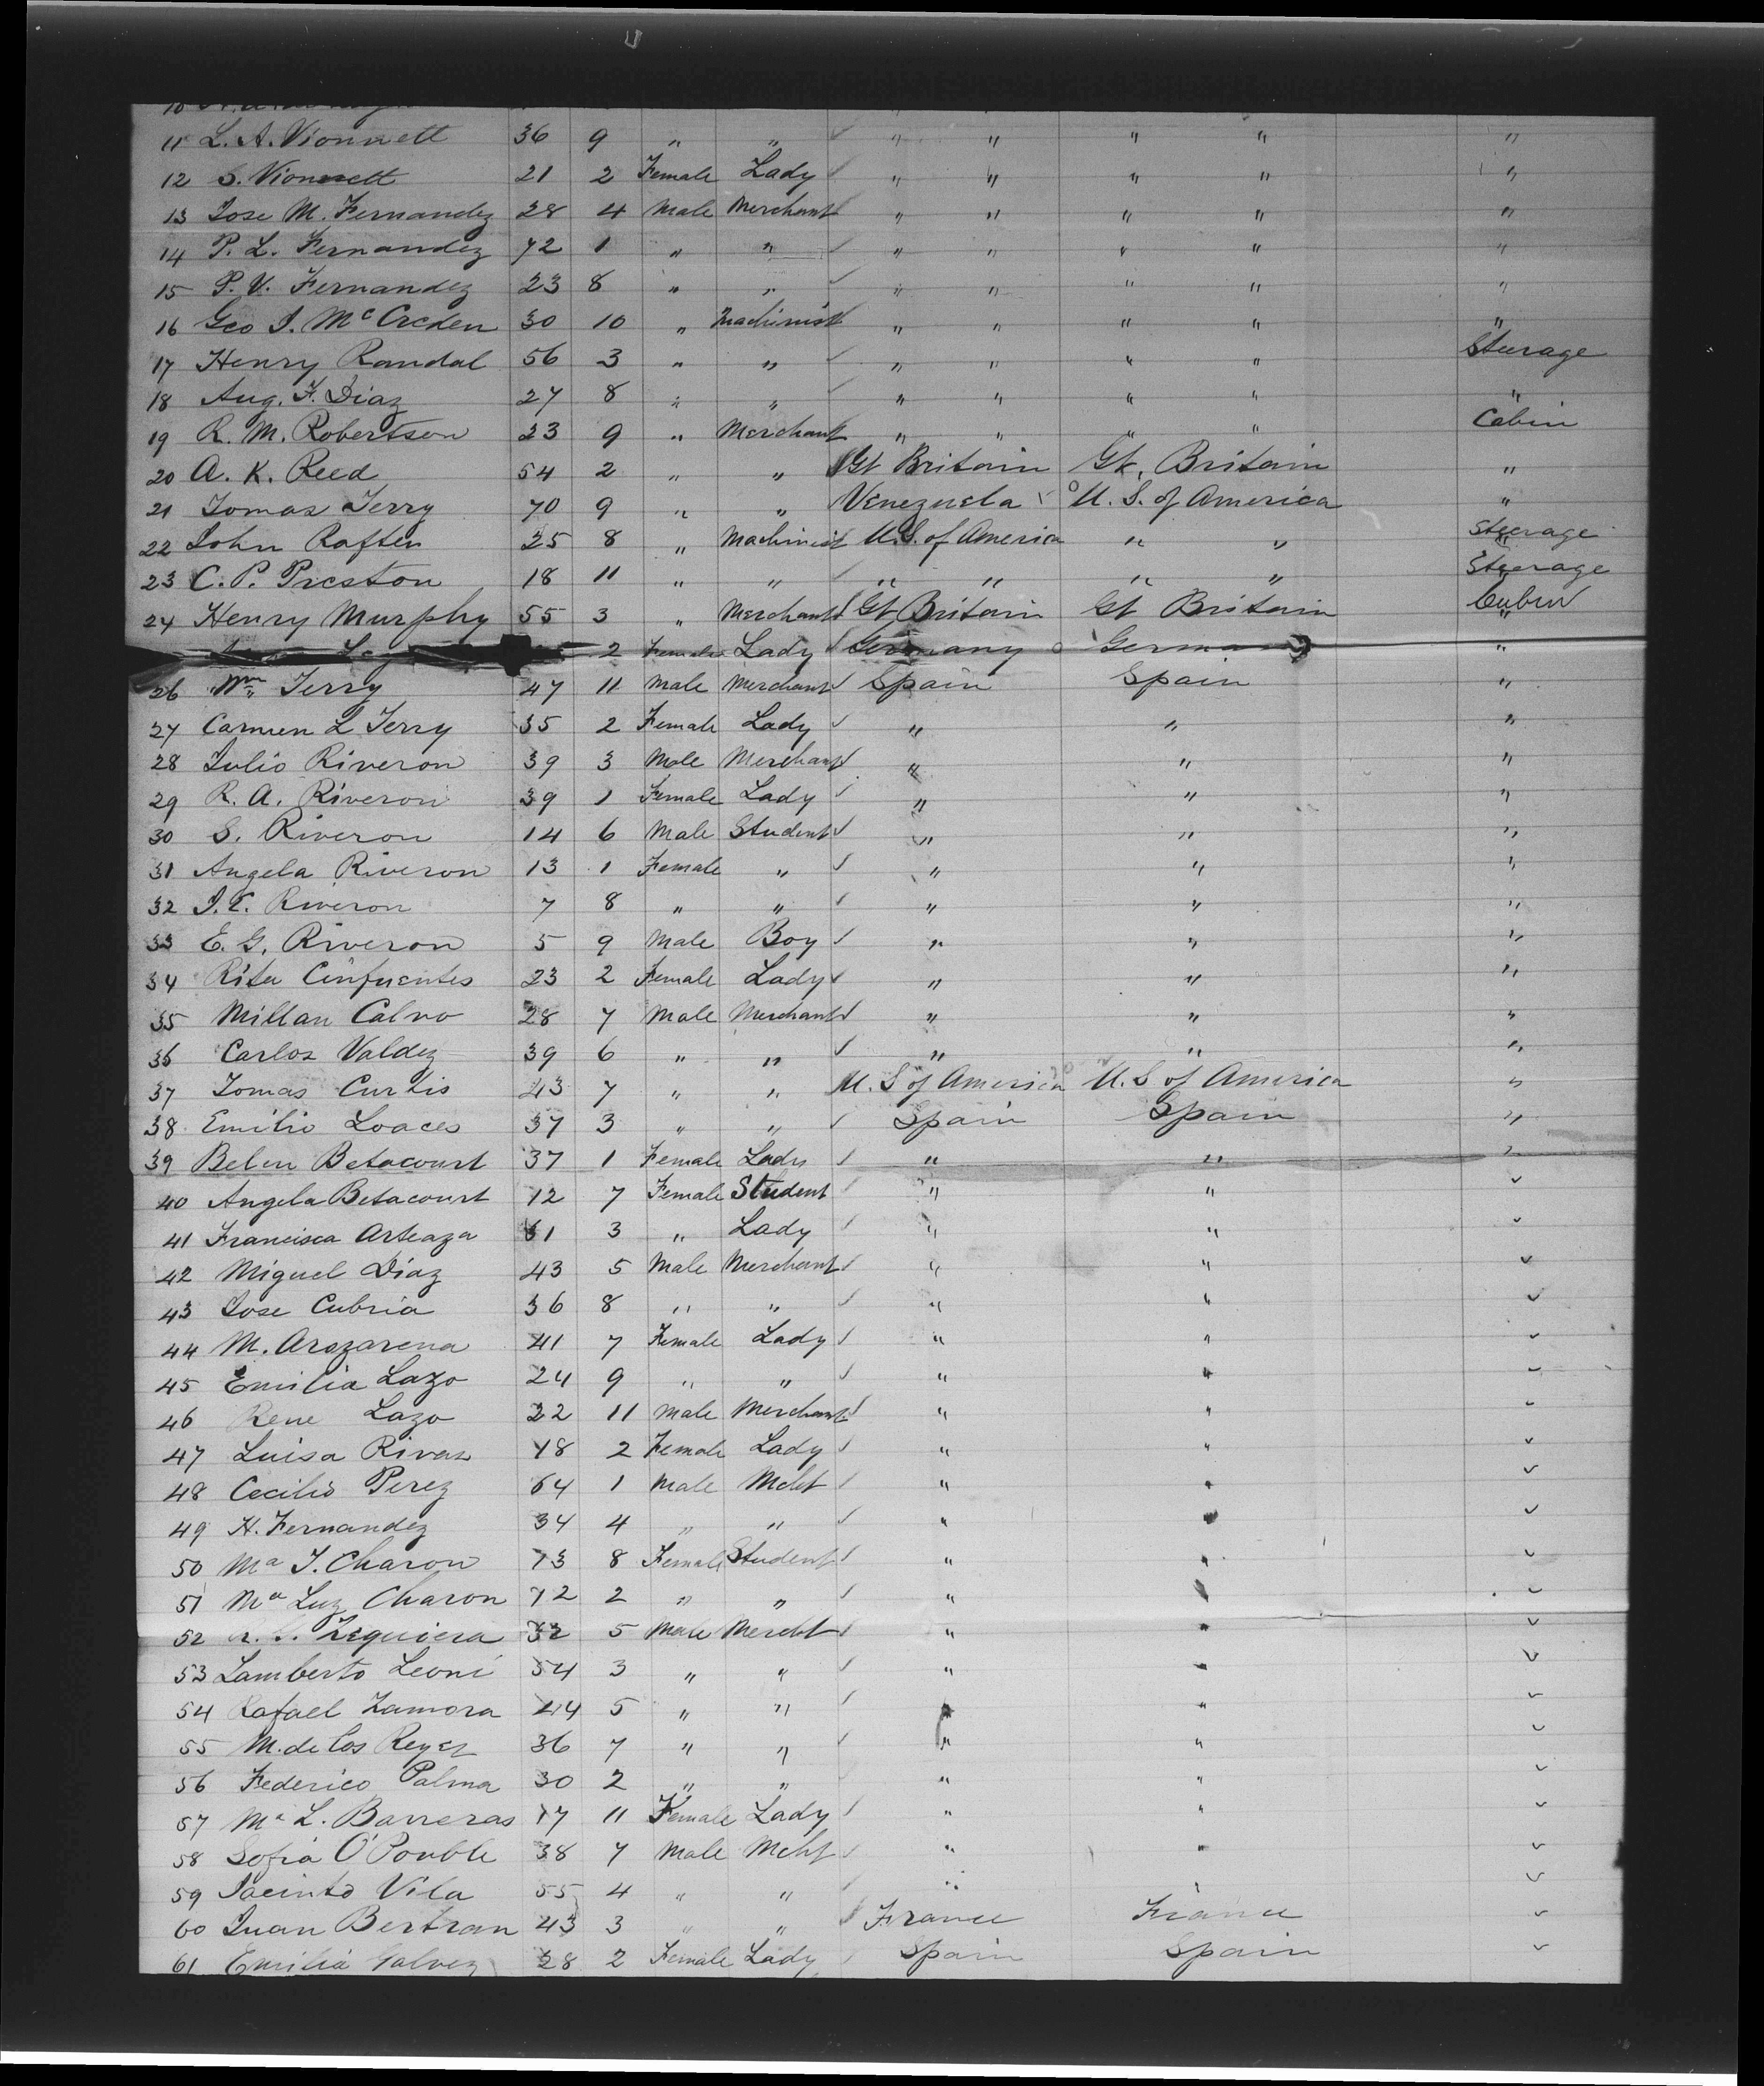 11 L. A. Vionnett 36 9 " " " " " " "
12 S. Vionnett 21 2 Female Lady " " " " "
13 Jose M. Fernandez 28 4 Male Merchant " " " " "
14 P. L. Fernandez 42 1 " " " " " " "
15 P. V. Fernandez 23 8 " " " " " " "
16 Geo J. McCreden 30 10 " Machinist " " " " "
17 Henry Randal 56 3 " " " " " " Steerage
18 Aug. F. Diaz 27 8 " " " " " " "
19 R. M. Robertson 23 9 " Merchant " " " " Cabin
20 A. K. Reed 54 2 " " Gt Britain Gt. Britain "
21 Tomas Terry 70 9 " " Venezuela U. S. of America "
22 John Raften 25 8 " Machinist U.S. of America " " Steerage
23 C. P. Preston 18 11 " " " " " " Steerage
24 Henry Murphy 55 3 " Merchant Gt Britain Gt Britain Cabin
2 Female Lady Germany Germany "
26 Wm Terry 47 11 Male Merchant Spain Spain "
27 Carmen L Terry 35 2 Female Lady " " "
28 Julio Riveron 39 3 Male Merchant " " "
29 R. A. Riveron 39 1 Female Lady " " "
30 S. Riveron 14 6 Male Student " " "
31 Angela Riveron 13 1 Female " " " "
32 J. C. Riveron 7 8 " " " " "
33 E. G. Riveron 5 9 Male Boy " " "
34 Rita Cinfuentes 23 2 Female Lady " " "
35 Millan Calvo 28 7 Male Merchant " " "
36 Carlos Valdez 39 6 " " " " "
37 Tomas Curtis 43 7 " " U. S of America U. S of America "
38 Emilio Loaces 37 3 " " Spain Spain "
39 Belen Betacourt 37 1 Female Lady " " "
40 Angela Betacourt 12 7 Female Student " "
41 Francisca Arteaza 61 3 " Lady " "
42 Miguel Diaz 43 5 Male Merchant " "
43 Jose Cubria 36 8 " " " "
44 M. Arozarena 41 7 Female Lady " "
45 Emilia Lazo 24 9 " " " "
46 Rene Lazo 22 11 Male Merchant " "
47 Luisa Rivas 18 2 Female Lady " "
48 Cecilio Perez 64 1 Male Mcht " "
49 H. Fernandez 34 4 " " " "
50 Ma J. Charon 13 8 Female Student " "
51 Ma Luz Charon 12 2 " " " "
52 Zequiera 32 5 Male Mercht " "
53 Lamberto Leoni 54 3 " " " "
54 Rafael Zamora 44 5 " " " "
55 M. de los Reyes 36 7 " " " "
56 Federico Palma 30 2 " " " "
57 Ma L. Barreras 17 11 Female Lady " "
58 Sofia O'Pouble 38 7 Male Mcht " "
59 Jacinto Vila 55 4 " " " "
60 Juan Bertran 43 3 " " France France
61 Emilia Galvez 28 2 Female Lady Spain Spain